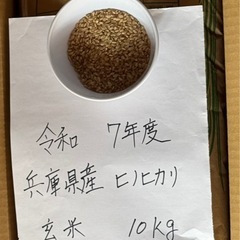 令和 7年度
兵庫県産 ヒノヒカリ
玄米 10kg